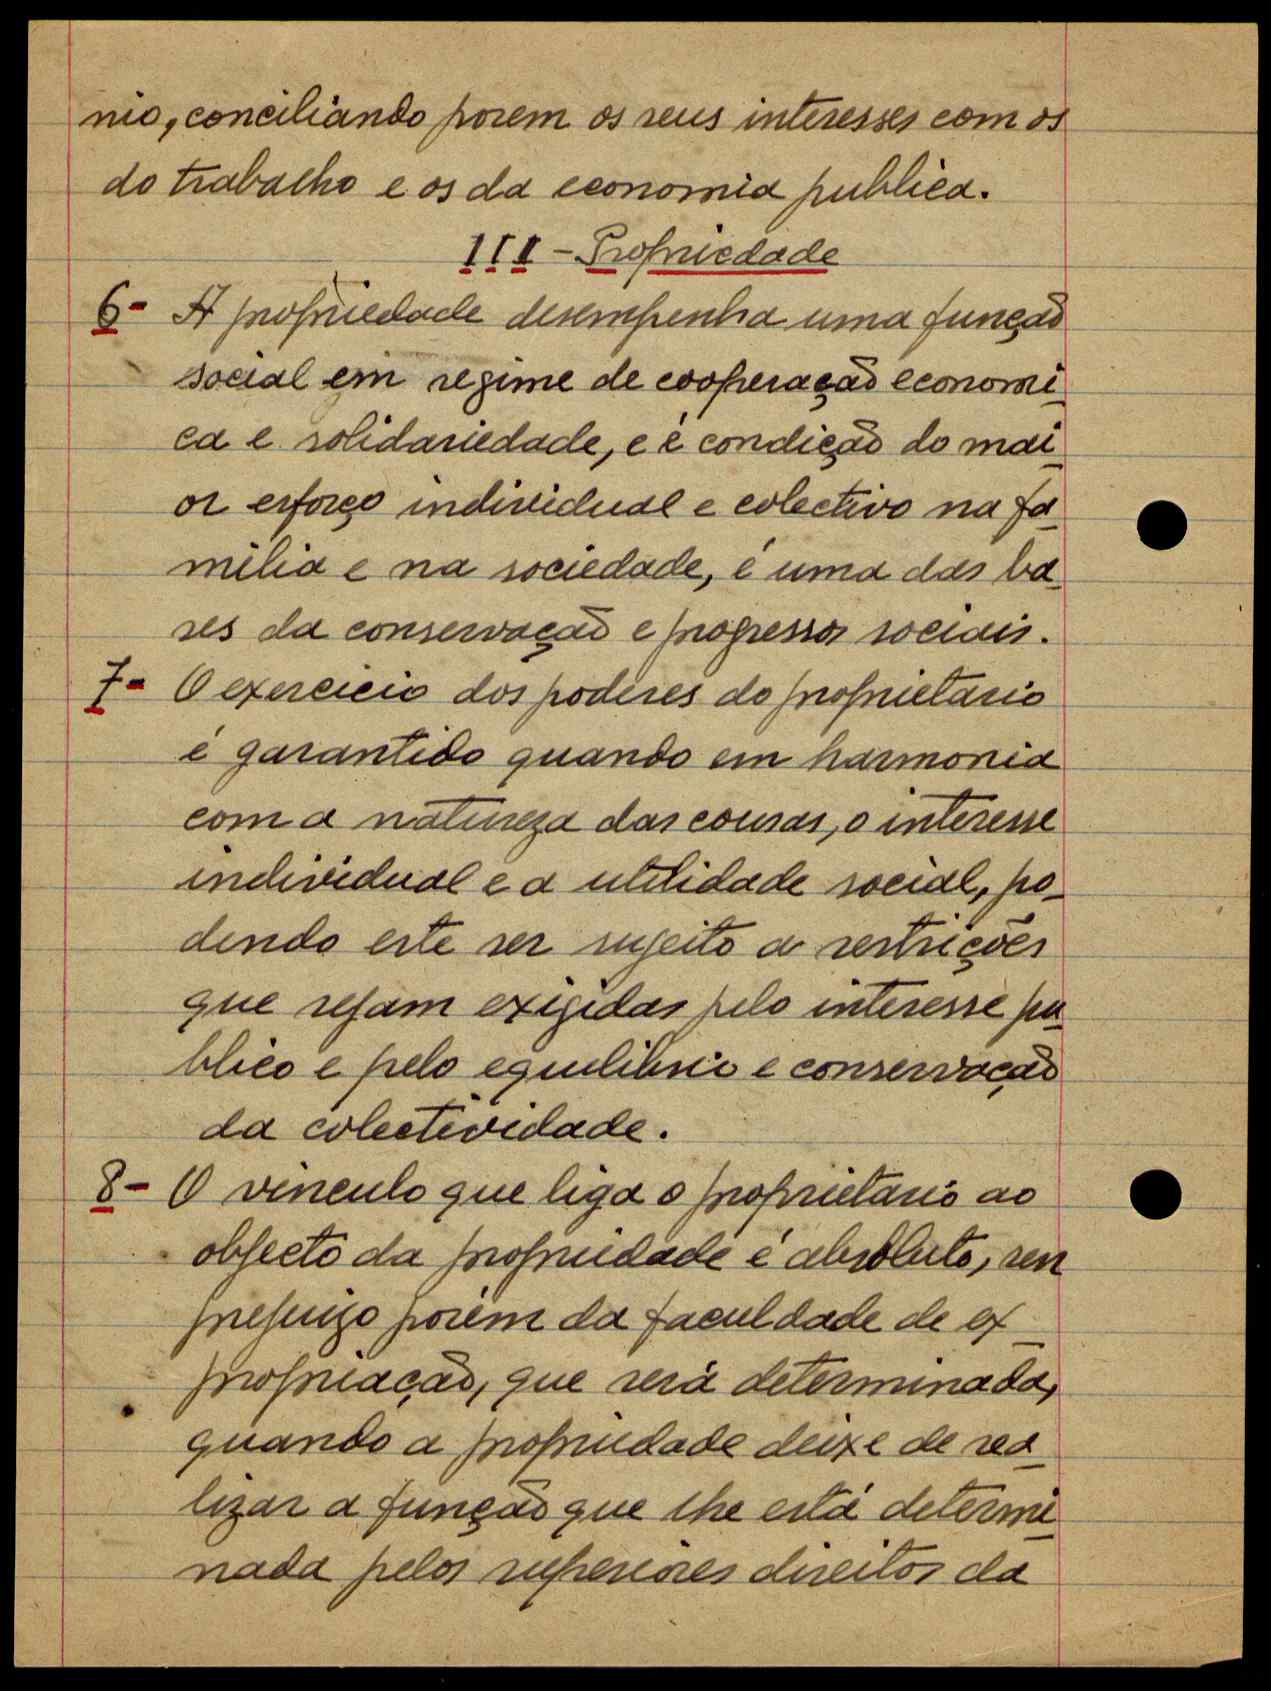 nio, conciliando porem os seus interesses com os
do trabalho e os da economia publica.
III - Propriedade
6- A propriedade desempenha uma função
social em regime de cooperação economi_
ca e solidariedade, e é condição do mai_
or esforço individual e colectivo na fa_
milia e na sociedade, é uma das ba_
ses da conservação e progressos sociais.
7- O exercicio dos poderes do proprietario
é garantido quando em harmonia
com a natureza das cousas, o interesse
individual e a utilidade social, po_
dendo este ser sujeito a restrições
que sejam exigidas pelo interesse pu_
blico e pelo equilibrio e conservação
da colectividade.
8- O vinculo que liga o proprietario ao
objecto da propriedade é absoluto, sem
prejuizo porém da faculdade de ex_
propriação, que será determinada,
quando a propriedade deixe de rea_
lizar a função que lhe está determi_
nada pelos superiores direitos da